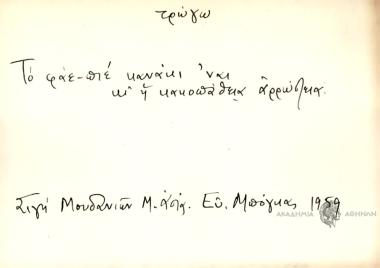 τρώγω
Τό φάε-πιέ κανάκι 'ναι
κι' ἡ κακοπάθεια ἀρρώστεια.
Σιγή Μουδανιῶν Μ. Ἀσία. Εὐ. Μπόγκας 1959
ΑΚΑΔΗΜΙΑ ΑΘΗΝΩΝ